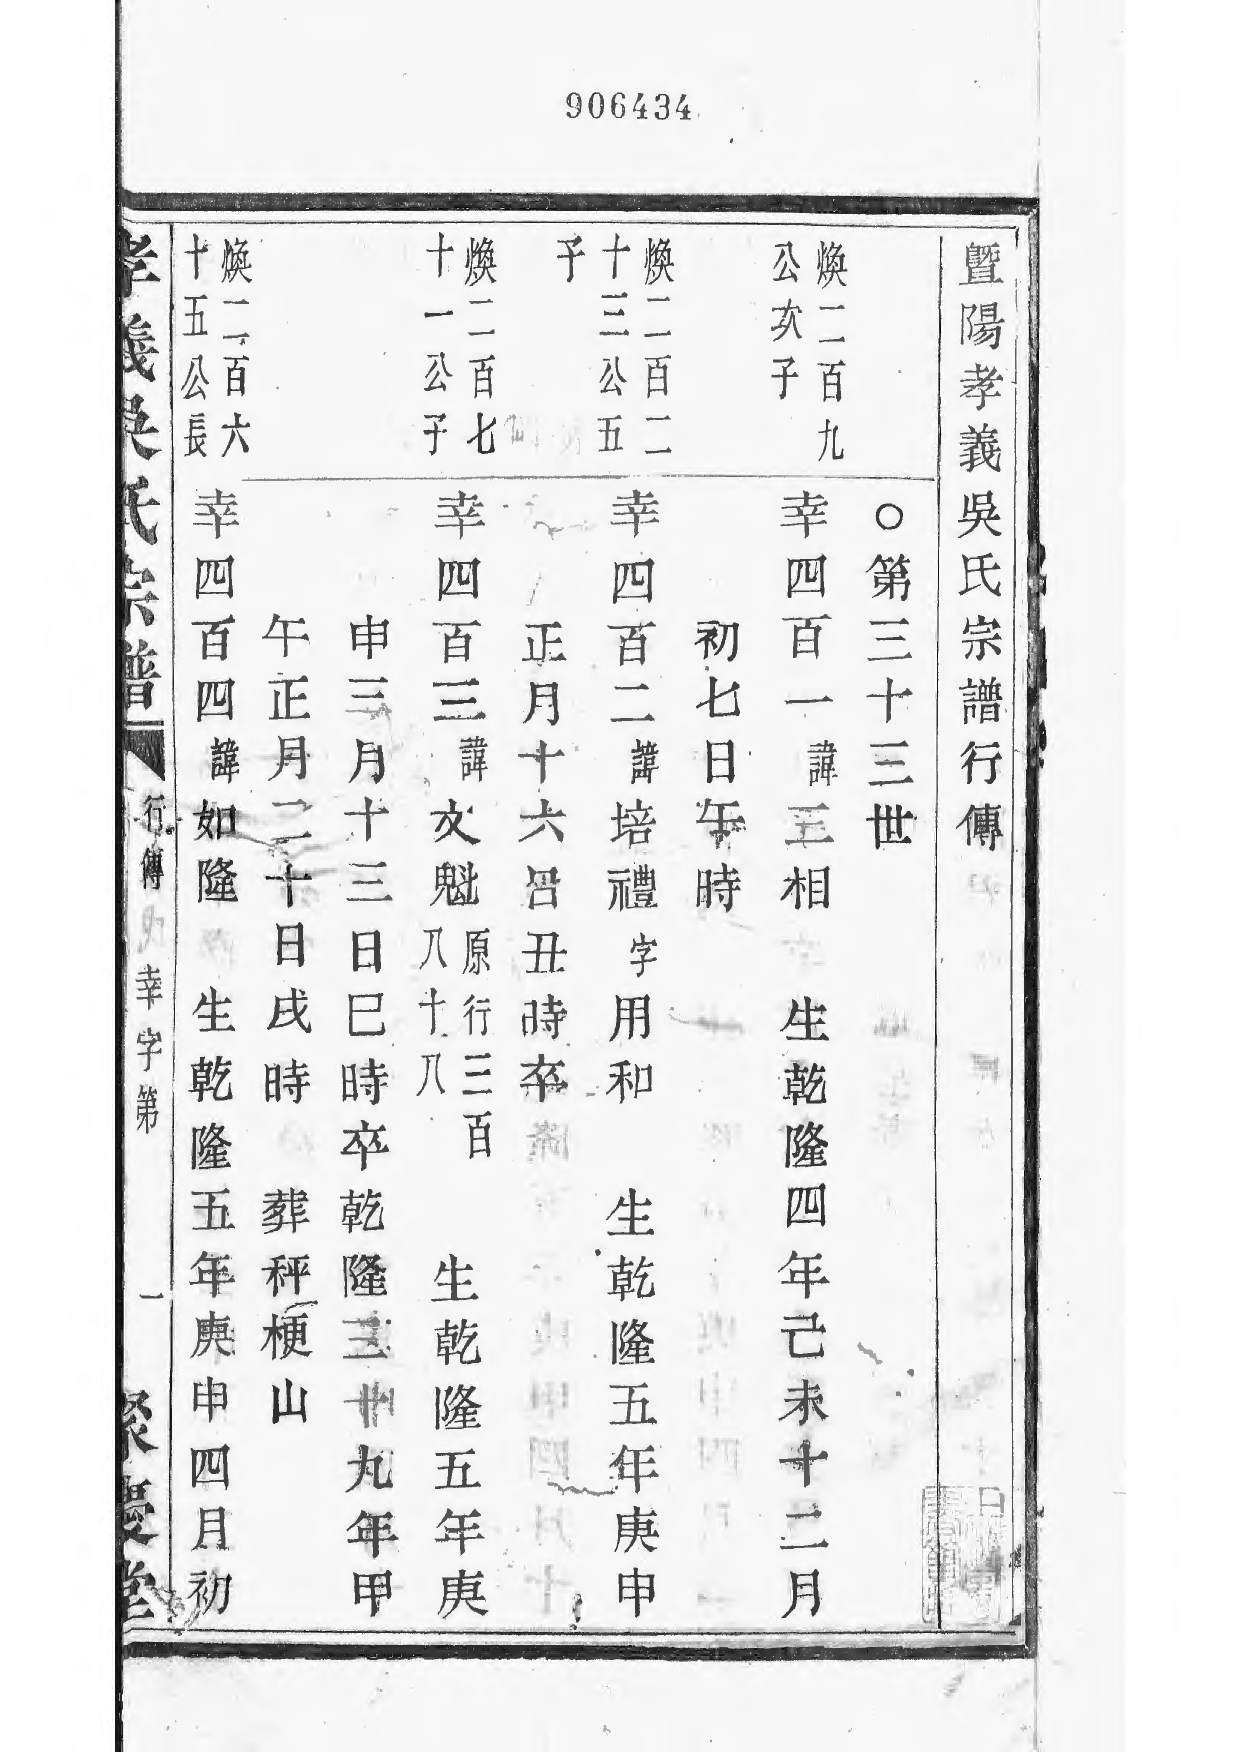 906434
暨陽孝義吳氏宗譜行傳
○第三十三世
煥二百九
公次子
幸四百一諱三相 生乾隆四年己未十二月
初七日午時
煥二百二
十三公五
子
幸四百二諱培禮字用和 生乾隆五年庚申
正月十六日丑時卒
煥二百七
十一公子
幸四百三諱文魁原行三百
八十八 生乾隆五年庚
申三月十三日巳時卒乾隆三十九年甲
午正月二十日戌時 葬秤梗山
煥二百六
十五公長
幸四百四諱如隆 生乾隆五年庚申四月初
孝義吳氏宗譜 行傳 幸字第 一 聚慶堂